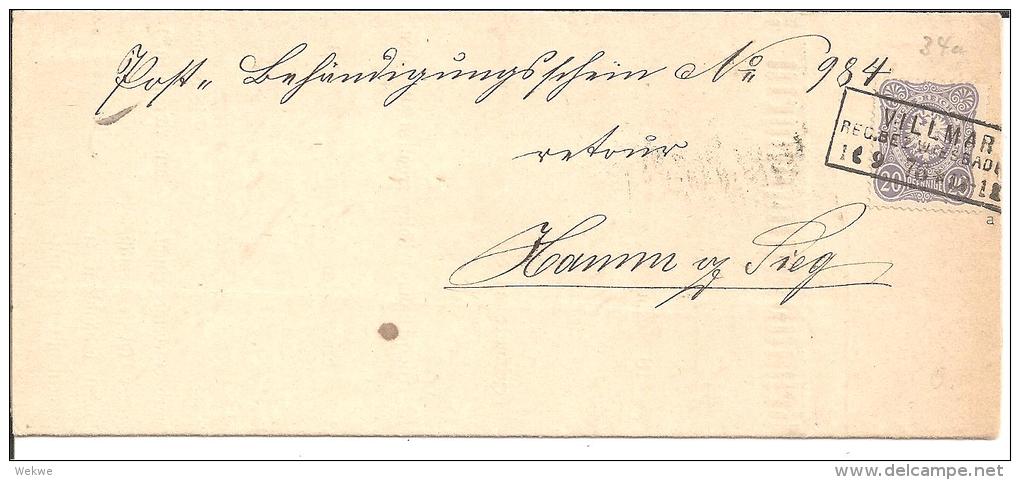 34a
Post„ Behändigungsschein No 984
retour
Hamm a/ Sieg
VILLMAR
REG.BEZ.WIESBADEN
20 PFENNIGE 20
a
Wekwe
www.delcampe.net